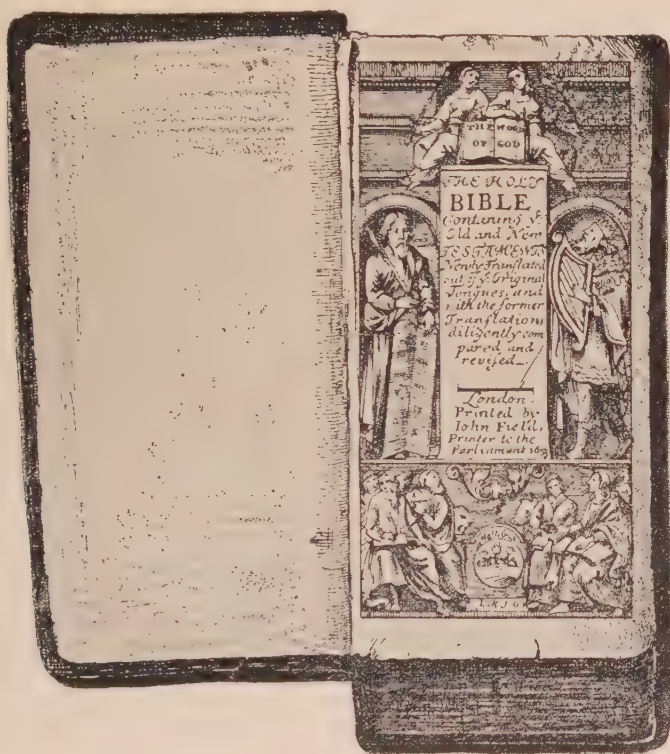 THE WORD
OF GOD
THE HOLY
BIBLE
Containing yᵉ
Old and New
TESTAMENTS
Newly Tranſlated
out of yᵉ Original
Tongues, and
with the former
Tranſlations
diligently com
pared and
reviſed
London
Printed by
Iohn Field,
Printer to the
Parliament